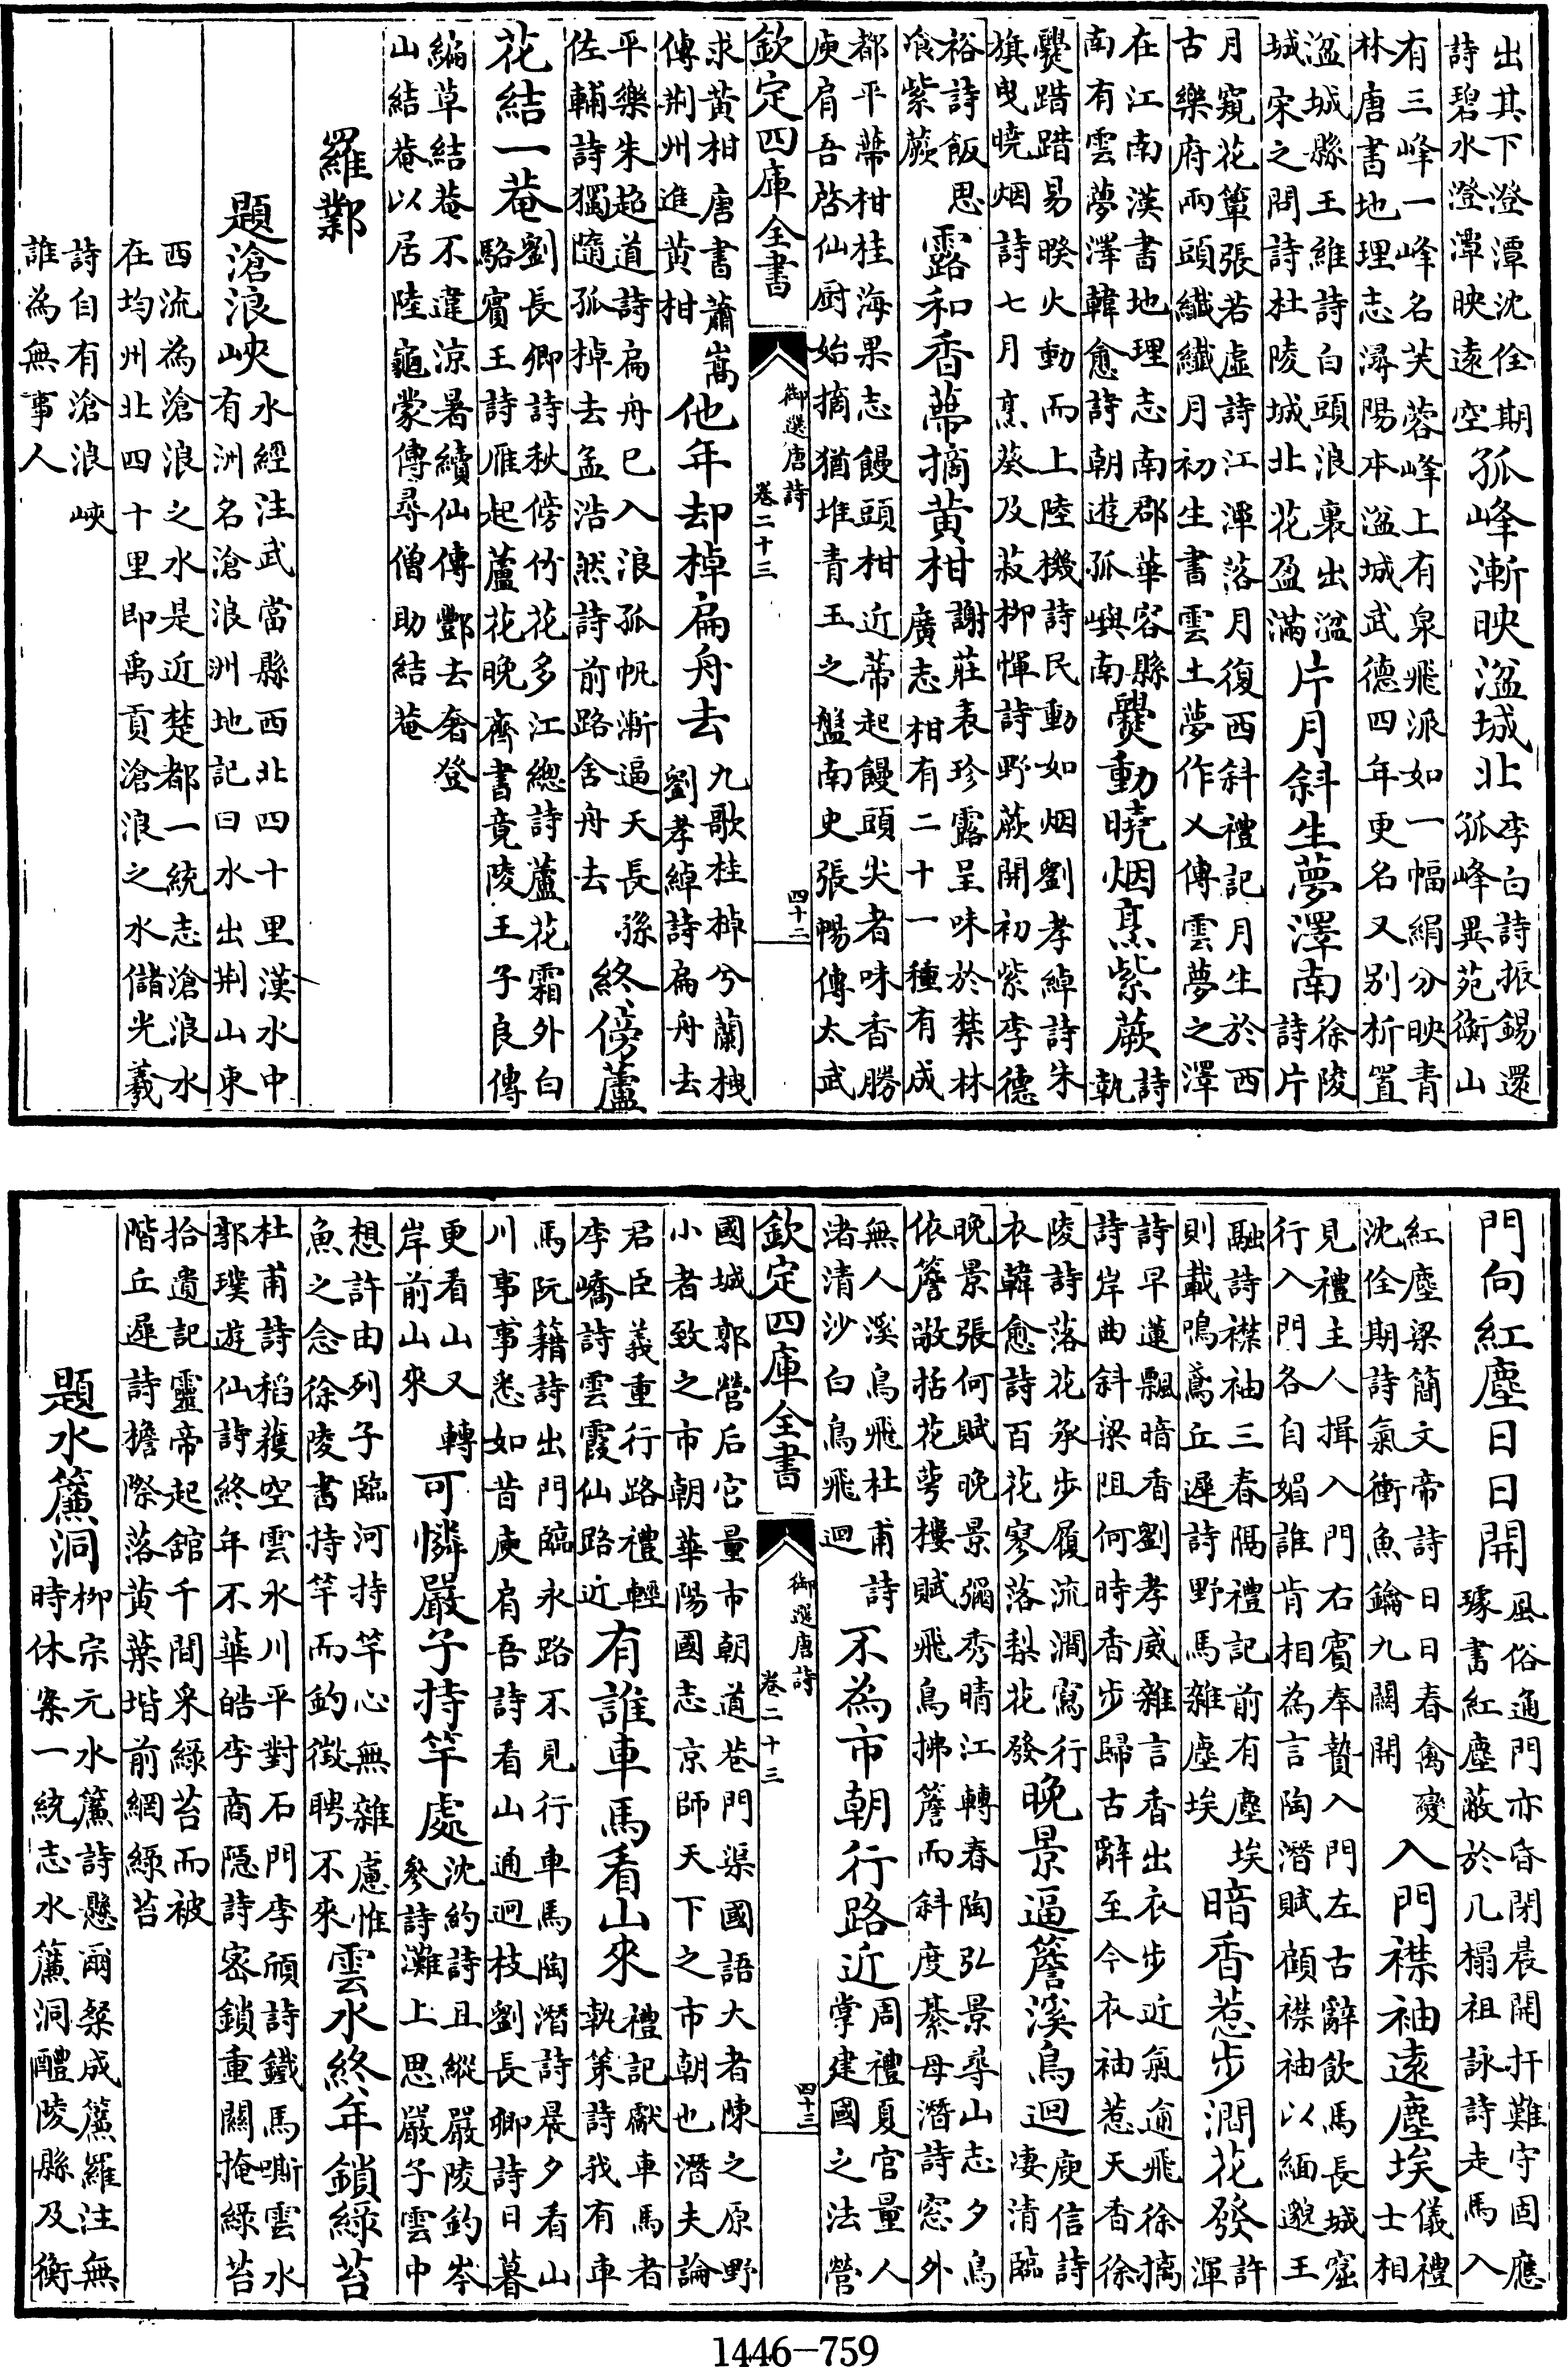 出其下澄潭沈佺期詩碧水澄潭映遠空孤峰漸映湓城北李白詩振錫還孤峰異苑衡山
有三峰一峰名芙蓉峰上有泉飛派如一幅絹分映青林唐書地理志潯陽本湓城武德四年更名又别析置
湓城縣王維詩白頭浪裏出湓城宋之問詩杜陵城北花盈滿片月斜生夢澤南徐陵詩片
月窺花簟張若虛詩江潭落月復西斜禮記月生於西古樂府兩頭纖纖月初生書雲土夢作乂傳雲夢之澤
在江南漢書地理志南郡華容縣南有雲夢澤韓愈詩朝遊孤嶼南爨動曉烟烹紫蕨詩執
爨踖踖易睽火動而上陸機詩民動如烟劉孝綽詩朱旗曳曉烟詩七月烹葵及菽柳惲詩野蕨開初紫李德
裕詩飯思飡紫蕨露和香蔕摘黄柑謝莊表珍露呈味於禁林廣志柑有二十一種有成
都平蔕柑桂海果志饅頭柑近蔕起饅頭尖者味香勝庾肩吾啓仙厨始摘猶堆青玉之盤南史張暢傳太武
欽定四庫全書 御選唐詩 卷二十三 四十二
求黄柑唐書蕭嵩傳荆州進黄柑他年却棹扁舟去九歌桂棹兮蘭枻劉孝綽詩扁舟去
平樂朱超道詩扁舟已入浪孤帆漸逼天長孫佐輔詩獨隨孤棹去孟浩然詩前路舍舟去終傍蘆
花結一菴劉長卿詩秋傍竹花多江總詩蘆花霜外白駱賓王詩雁起蘆花晚齊書竟陵王子良傳
編草結菴不違涼暑續仙傳酆去奢登山結菴以居陸龜蒙傳尋僧助結菴
羅鄴
題滄浪峽水經注武當縣西北四十里漢水中有洲名滄浪洲地記曰水出荆山東
西流為滄浪之水是近楚都一統志滄浪水在均州北四十里即禹貢滄浪之水儲光羲
詩自有滄浪峽誰為無事人
門向紅塵日日開風俗通門亦昏閉晨開扞難守固應璩書紅塵蔽於几榻祖詠詩走馬入
紅塵梁簡文帝詩日日春禽變沈佺期詩氣衝魚鑰九關開入門襟袖遠塵埃儀禮士相
見禮主人揖入門右賓奉贄入門左古辭飲馬長城窟行入門各自媚誰肯相為言陶潛賦願襟袖以緬邈王
融詩襟袖三春隔禮記前有塵埃則載鳴鳶丘遲詩野馬雜塵埃暗香惹步澗花發許渾
詩早蓮飄暗香劉孝威雜言香出衣步近氣逾飛徐摛詩岸曲斜梁阻何時香步歸古辭至今衣袖惹天香徐
陵詩落花承步履流澗寫行衣韓愈詩百花寥落梨花發晚景逼簷溪鳥迴庾信詩淒清臨
晚景張何賦晚景彌秀晴江轉春陶弘景尋山志夕鳥依簷敞括花萼樓賦飛鳥拂簷而斜度綦母潛詩窓外
無人溪鳥飛杜甫詩渚清沙白鳥飛迴不為市朝行路近周禮夏官量人掌建國之法營
欽定四庫全書 御選唐詩 卷二十三 四十三
國城郭營后宫量市朝道巷門渠國語大者陳之原野小者致之市朝華陽國志京師天下之市朝也潛夫論
君臣義重行路禮輕李嶠詩雲霞仙路近有誰車馬看山來禮記獻車馬者執策詩我有車
馬阮籍詩出門臨永路不見行車馬陶潛詩晨夕看山川事事悉如昔庾肩吾詩看山通迥枝劉長卿詩日暮
更看山又轉岸前山來可憐嚴子持竿處沈約詩且縱嚴陵釣岑參詩灘上思嚴子雲中
想許由列子臨河持竿心無雜慮惟魚之念徐陵書持竿而釣徵聘不來雲水終年鎖綠苔
杜甫詩稻穫空雲水川平對石門李頎詩鐵馬嘶雲水郭璞遊仙詩終年不華皓李商隱詩密鎖重關掩綠苔
拾遺記靈帝起舘千間采綠苔而被階丘遲詩擔際落黄葉堦前網綠苔
題水簾洞柳宗元水簾詩懸㽞粲成簾羅注無時休案一統志水簾洞醴陵縣及衡